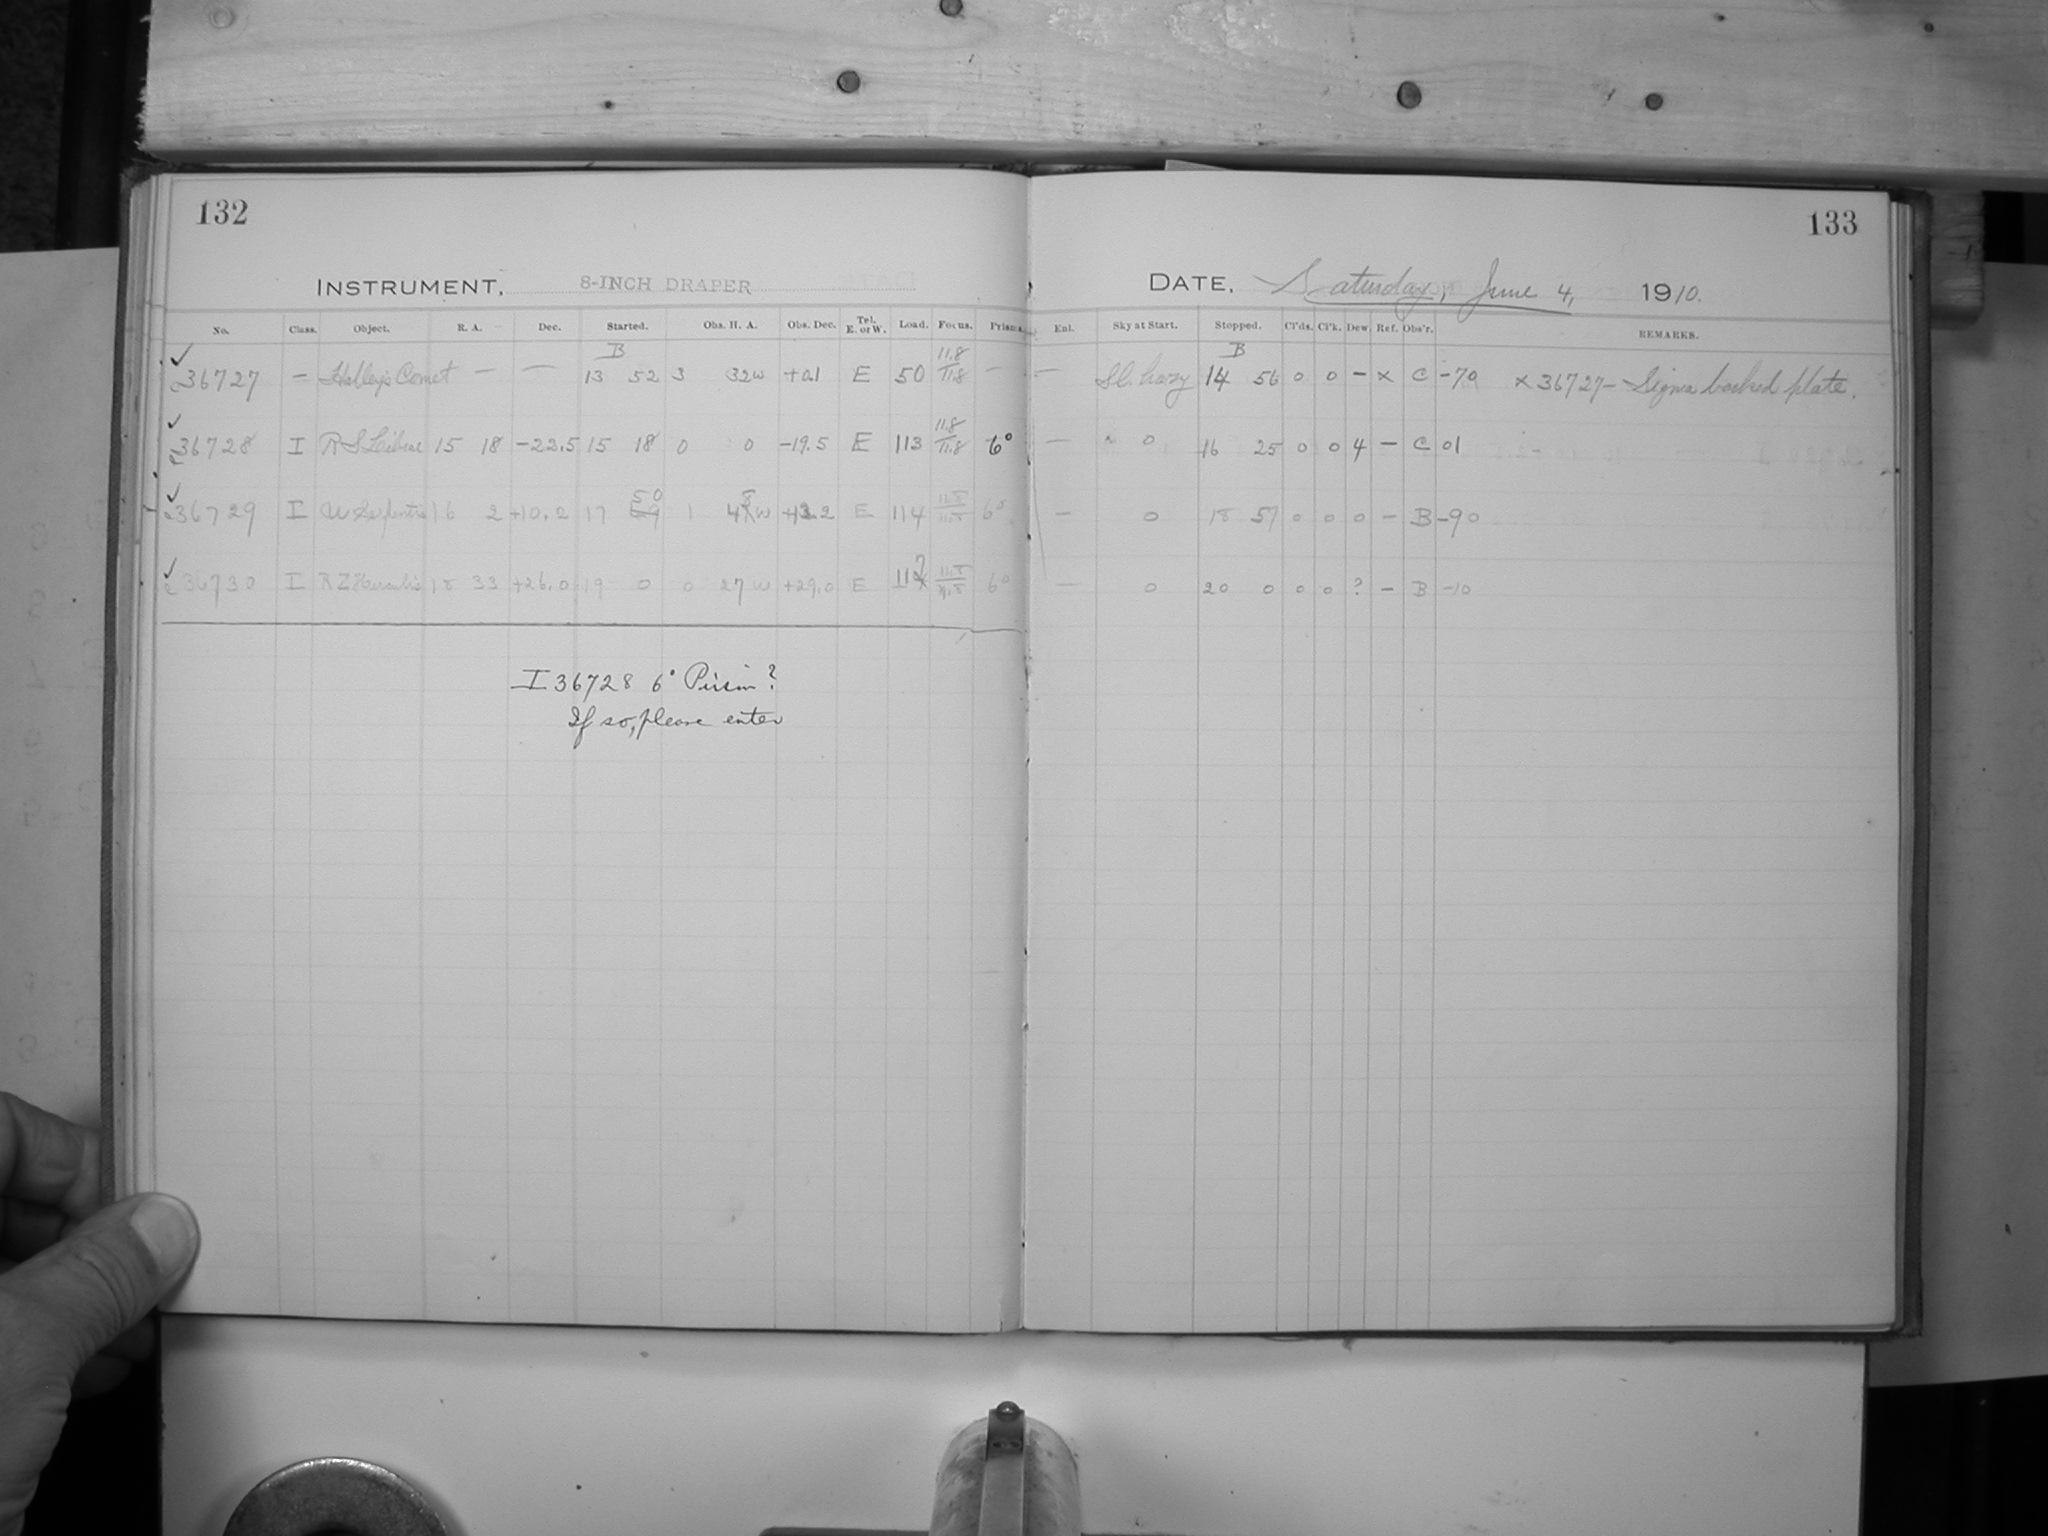 132
133
INSTRUMENT, 8-INCH DRAPER
DATE, Saturday, June 4, 1910.
No. Class. Object. R. A. Dec. Started. Obs. H. A. Obs. Dec. Tel. E. or W. Load. Focus. Prisms. Enl. Sky at Start. Stopped. Cl'ds. Cl'k. Dew. Ref. Obs'r. REMARKS.
B B
✓ 36727 — Halley's Comet — — 13 52 3 32w +0.1 E 50 11.8/11.8 — — Sl. hazy 14 56 0 0 - x C -70 x 36727 - Sigma backed plate.
✓ 36728 I R S Librae 15 18 -22.5 15 18 0 0 -19.5 E 113 11.8/11.8 6° — 0 16 25 0 0 4 - C 01
✓ 36729 I U Serpentis 16 2 +10.2 17 50 1 48 w E 114 6° — 0 18 57 0 0 0 - B -90
✓ 36730 I R Z Herculis 18 33 +26.0 19 0 0 27 w +29.0 E 117 6° — 0 20 0 0 0 ? - B -10
I 36728 6° Prism?
If so, please enter